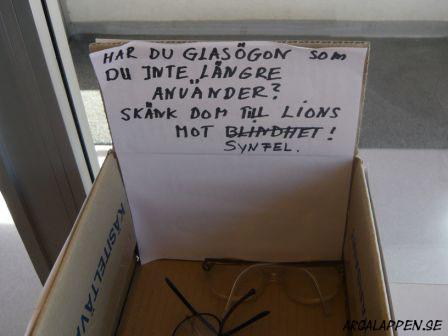 HAR DU GLASÖGON SOM
DU INTE LÄNGRE
ANVÄNDER?
SKÄNK DOM TILL LIONS
MOT BLINDHET!
SYNFEL.
KÄSITELTÄVÄ
ARGALAPPEN.SE